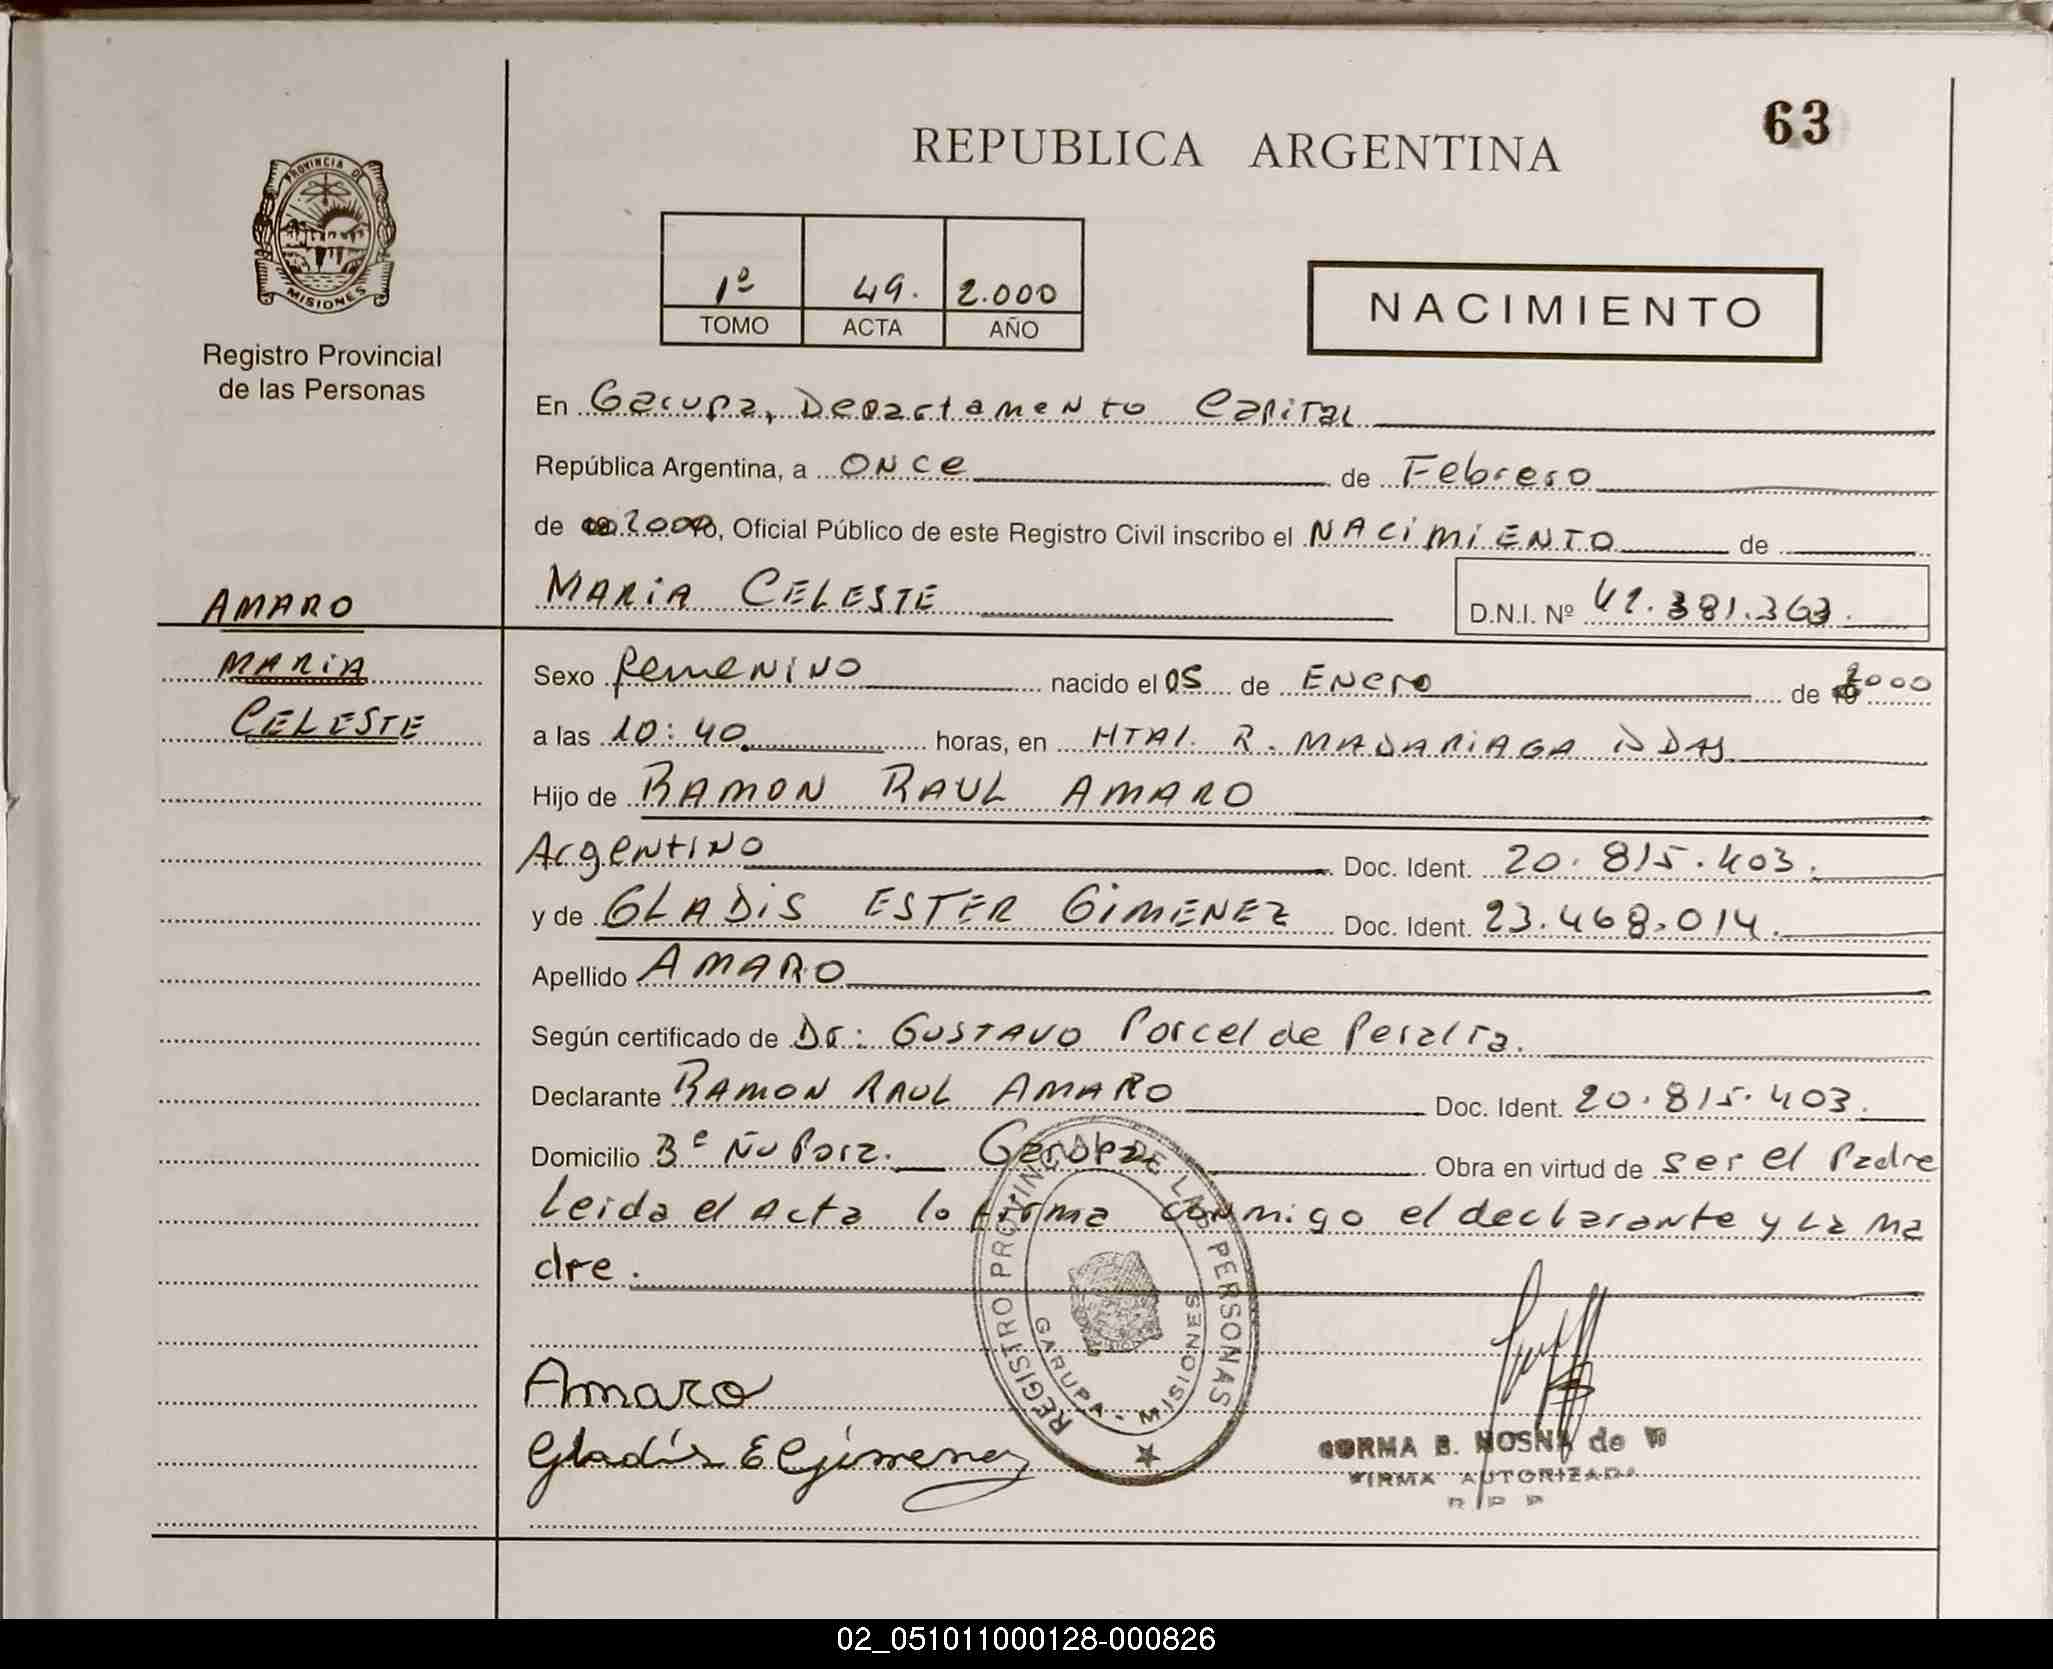 63
REPUBLICA ARGENTINA
PROVINCIA DE
MISIONES
Registro Provincial
de las Personas
1º 49. 2.000
TOMO ACTA AÑO
NACIMIENTO
En Garupa, Departamento Capital
República Argentina, a once de Febrero
de 2000, Oficial Público de este Registro Civil inscribo el NACIMIENTO de
MARIA CELESTE D.N.I. Nº 42.381.363.
AMARO
MARIA
CELESTE
Sexo femenino nacido el 05 de ENERO de 2000
a las 10:40 horas, en HTAl. R. MADARIAGA PDAS
Hijo de RAMON RAUL AMARO
Argentino Doc. Ident. 20.815.403.
y de GLADIS ESTER GIMENEZ Doc. Ident. 23.468.014.
Apellido AMARO
Según certificado de Dr: GUSTAVO Porcel de Peralta.
Declarante RAMON RAUL AMARO Doc. Ident. 20.815.403.
Domicilio Bº Ñu Pora. Garupa. Obra en virtud de ser el Padre
Leida el Acta lo firma conmigo el declarante y la ma
dre.
REGISTRO PROVINCIAL DE LAS PERSONAS
GARUPA - MISIONES
Amaro
Gladís E Gimenez
B. NOSNA de
FIRMA AUTORIZADA
02_051011000128-000826